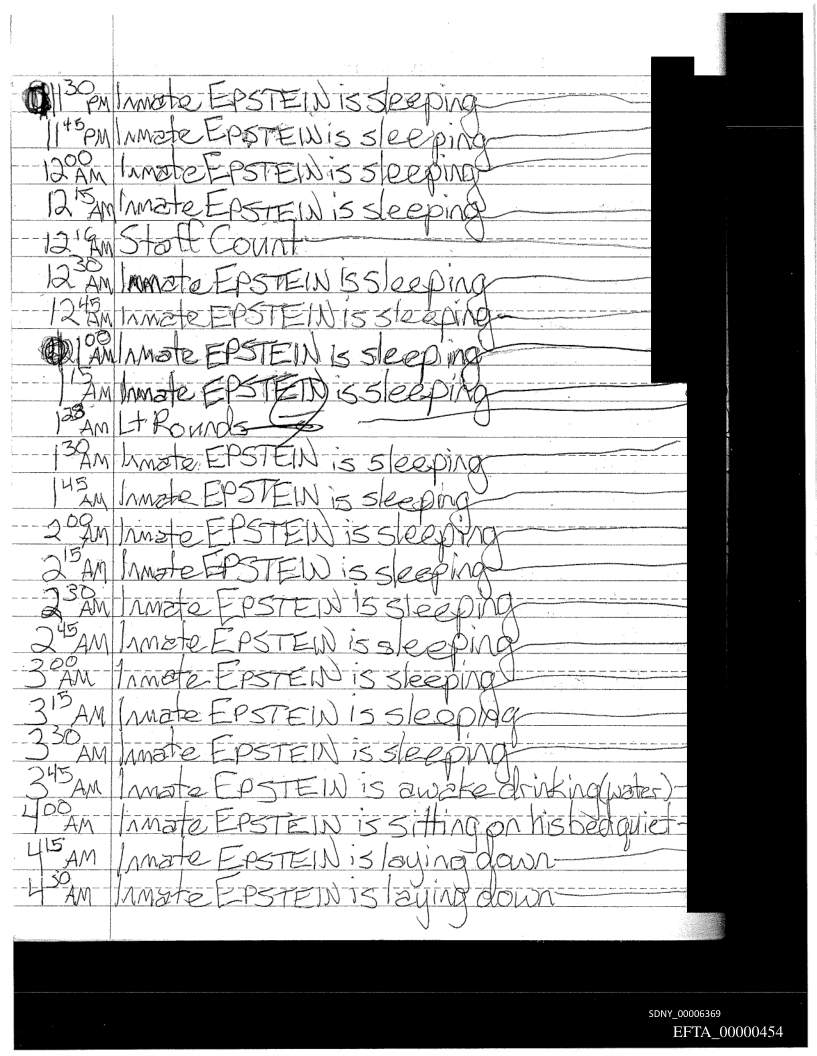 11 30 PM Inmate EPSTEIN is sleeping
11 45 PM Inmate EPSTEIN is sleeping
12 00 AM Inmate EPSTEIN is sleeping
12 15 AM Inmate EPSTEIN is sleeping
12 16 AM Staff Count
12 30 AM Inmate EPSTEIN is sleeping
12 45 AM Inmate EPSTEIN is sleeping
1 00 AM Inmate EPSTEIN is sleeping
1 15 AM Inmate EPSTEIN is sleeping
1 28 AM Lt Rounds
1 30 AM Inmate EPSTEIN is sleeping
1 45 AM Inmate EPSTEIN is sleeping
2 00 AM Inmate EPSTEIN is sleeping
2 15 AM Inmate EPSTEIN is sleeping
2 30 AM Inmate EPSTEIN is sleeping
2 45 AM Inmate EPSTEIN is sleeping
3 00 AM Inmate EPSTEIN is sleeping
3 15 AM Inmate EPSTEIN is sleeping
3 30 AM Inmate EPSTEIN is sleeping
3 45 AM Inmate EPSTEIN is awake drinking (water)
4 00 AM Inmate EPSTEIN is sitting on his bed quiet
4 15 AM Inmate EPSTEIN is laying down
4 30 AM Inmate EPSTEIN is laying down
SDNY_00006369
EFTA_00000454